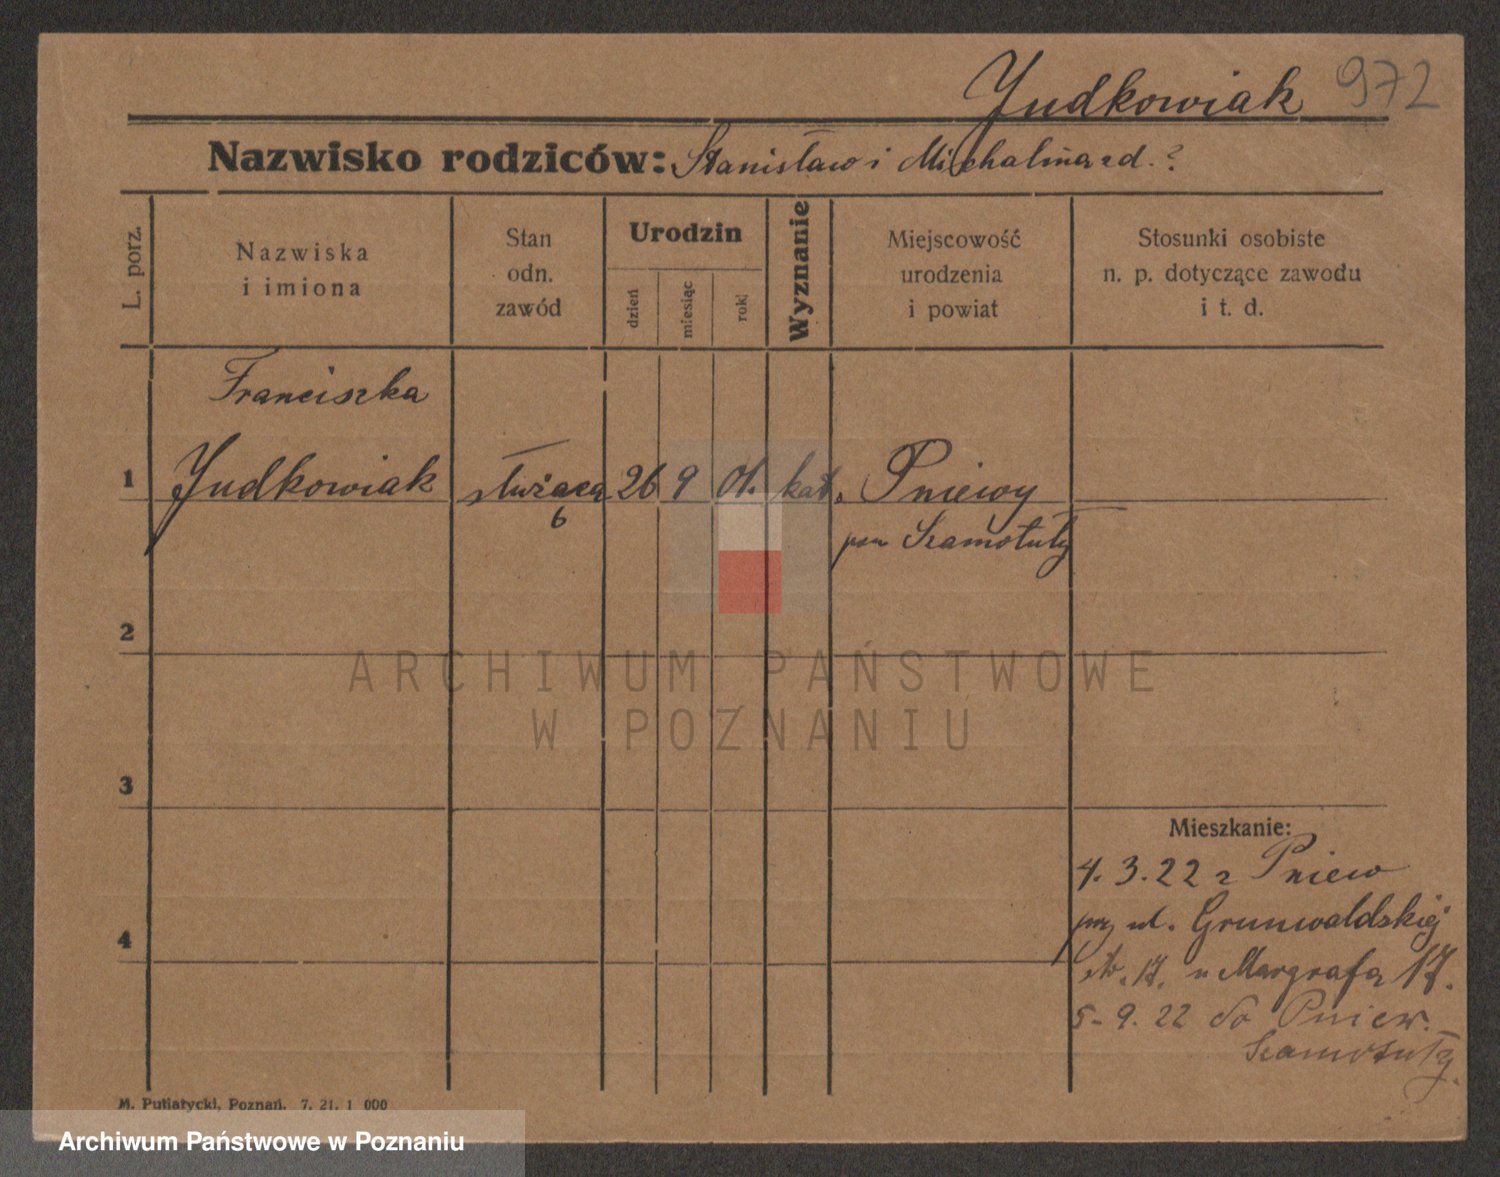 Judkowiak 972
Nazwisko rodziców: Stanisław i Michalina zd. ?
L. porz.
Nazwiska
i imiona
Stan
odn.
zawód
Urodzin
dzień
miesiąc
rok
Wyznanie
Miejscowość
urodzenia
i powiat
Stosunki osobiste
n. p. dotyczące zawodu
i t. d.
Franciszka
1 Judkowiak służąca 26 9 01. kat. Pniewy
6
pow Szamotuły
2
3
4
Mieszkanie:
4. 3. 22 z Pniew
przy ul. Grunwaldskiej
17. u Margrafa 17.
5-9. 22 do Pniew.
Szamotuły.
M. Putiatycki, Poznań. 7. 21. 1 000
ARCHIWUM PAŃSTWOWE
W POZNANIU
Archiwum Państwowe w Poznaniu